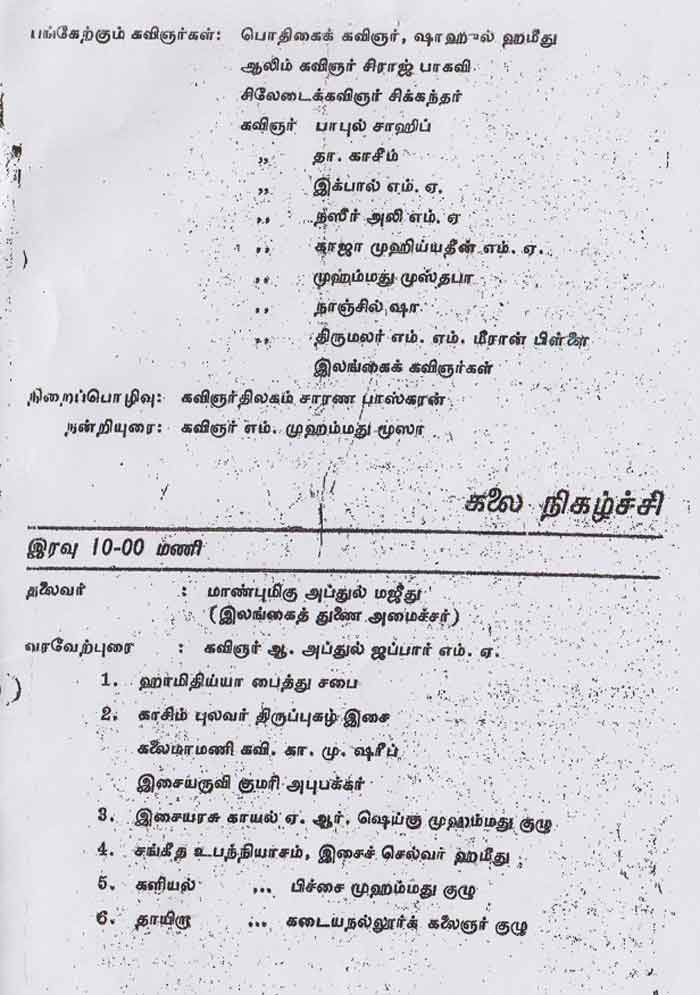 பங்கேற்கும் கவிஞர்கள்: பொதிகைக் கவிஞர், ஷாஹுல் ஹமீது
ஆலிம் கவிஞர் சிராஜ் பாகவி
சிலேடைக்கவிஞர் சிக்கந்தர்
கவிஞர் பாபுல் சாஹிப்
,, தா. காசீம்
,, இக்பால் எம். ஏ.
,, நஸீர் அலி எம். ஏ
,, காஜா முஹிய்யதீன் எம். ஏ.
,, முஹம்மது முஸ்தபா
,, நாஞ்சில் ஷா
,, திருமலர் எம். எம். மீரான் பிள்ளை
இலங்கைக் கவிஞர்கள்
நிறைப்பொழிவு: கவிஞர்திலகம் சாரண பாஸ்கரன்
நன்றியுரை: கவிஞர் எம். முஹம்மது மூஸா
கலை நிகழ்ச்சி
இரவு 10-00 மணி
தலைவர் : மாண்புமிகு அப்துல் மஜீது
(இலங்கைத் துணை அமைச்சர்)
வரவேற்புரை : கவிஞர் ஆ. அப்துல் ஜப்பார் எம். ஏ.
1. ஹாமிதிய்யா பைத்து சபை
2. காசிம் புலவர் திருப்புகழ் இசை
கலைமாமணி கவி. கா. மு. ஷரீப்
இசையருவி குமரி அபுபக்கர்
3. இசையரசு காயல் ஏ. ஆர். ஷெய்கு முஹம்மது குழு
4. சங்கீத உபந்நியாசம், இசைச் செல்வர் ஹமீது
5. களியல் ... பிச்சை முஹம்மது குழு
6. தாயிறா ... கடையநல்லூர்க் கலைஞர் குழு